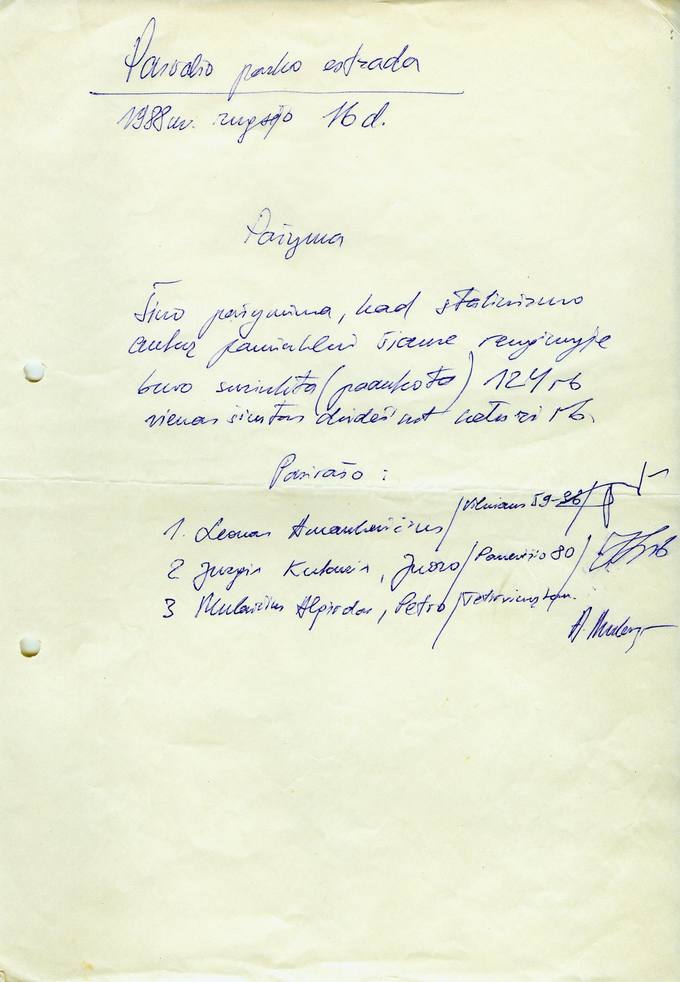 Parodų parko estrada
1988 m. rugsėjo 16 d.
Pažyma
Šiuo pažymima, kad stalinizmo
aukų paminklui šiame renginyje
buvo surinkta (paaukota) 124 rb
vienas šimtas dvidešimt keturi rb.
Pasirašo:
1. Leonas /Vilniaus 59-36/
2 Jurgis Kubaris, Juozo /Panevėžio 80/
3 Algirdas, Petro /
A.